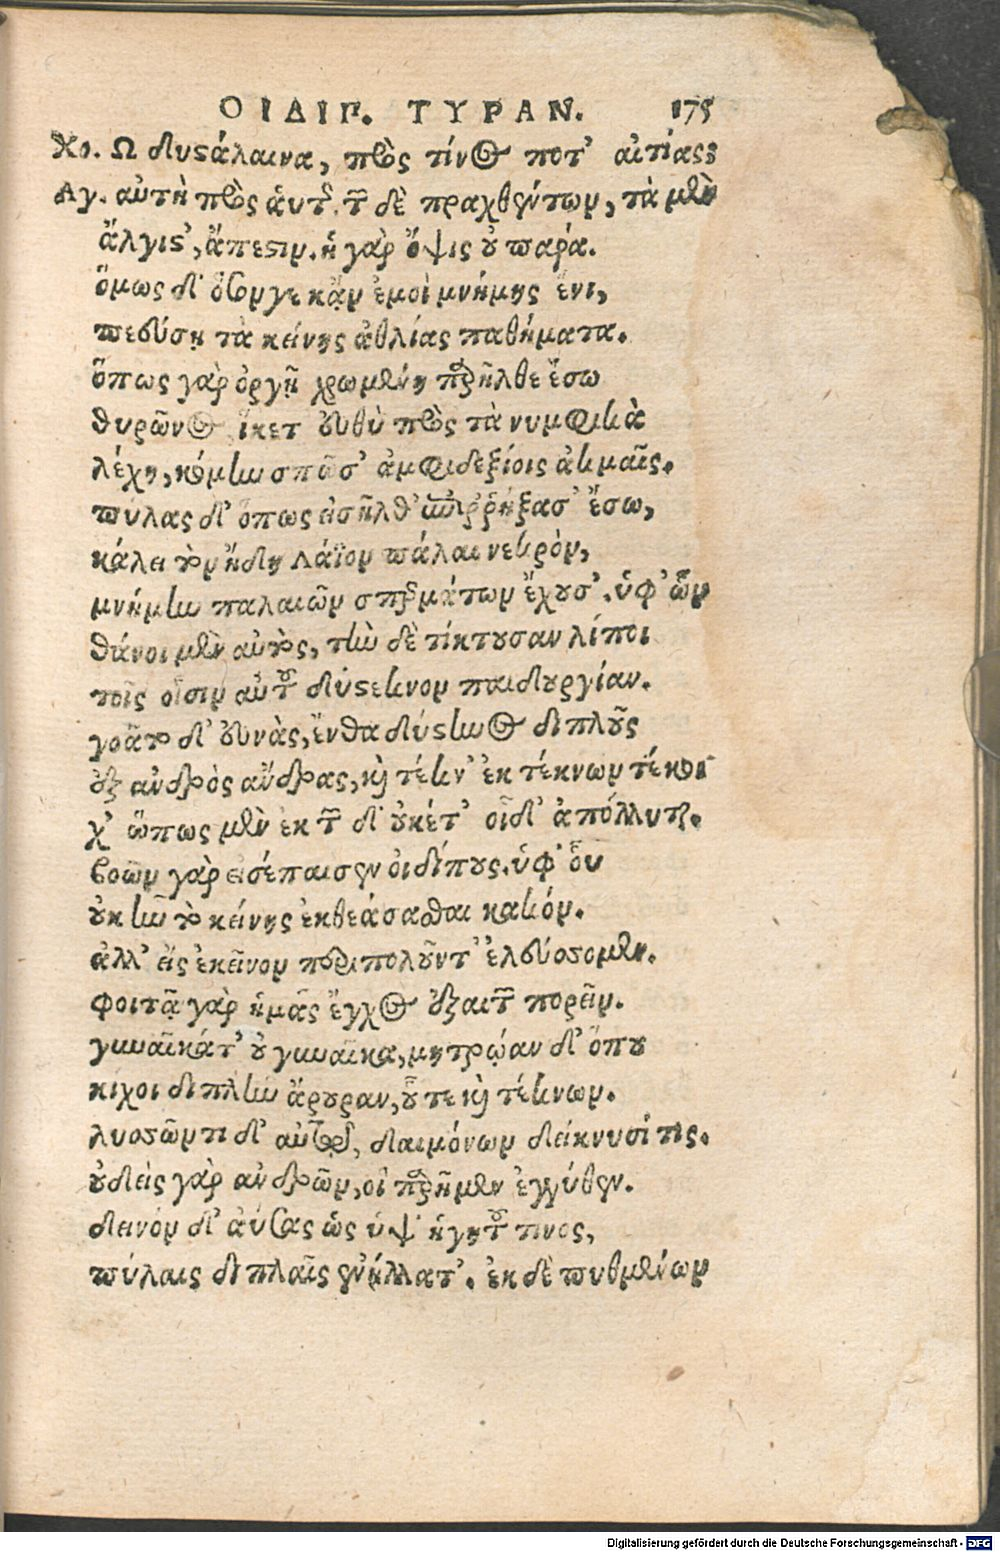 ΟΙΔΙΠ. ΤΥΡΑΝ. 175
Χο. Ω δυστάλαινα, πρὸς τίνος ποτ' αἰτίας;
Αγ. αὐτὴ πρὸς αὑτῆς. τῶν δὲ πραχθέντων, τὰ μὲν
ἄλγιστ', ἄπεστιν. ἡ γὰρ ὄψις οὐ πάρα.
ὅμως δ' ὅσον γε κᾂν ἐμοὶ μνήμης ἔνι,
πεύσῃ τὰ κείνης ἀθλίας παθήματα.
ὅπως γὰρ ὀργῇ χρωμένη παρῆλθε ἔσω
θυρῶνος ἵκετ' εὐθὺ πρὸς τὰ νυμφικὰ
λέχη, κόμην σπῶσ' ἀμφιδεξίοις ἀκμαῖς.
πύλας δ' ὅπως εἰσῆλθ' ἐπιρρήξασ' ἔσω,
κάλει τὸν ἤδη Λάϊον πάλαι νεκρὸν,
μνήμην παλαιῶν σπερμάτων ἔχουσ'. ὑφ' ὧν
θάνοι μὲν αὐτὸς, τὴν δὲ τίκτουσαν λίποι
τοῖς οἷσιν αὐτοῦ δύστεκνον παιδουργίαν.
γοᾶτο δ' εὐνὰς, ἔνθα δύστηνος διπλοῦς
ἐξ ἀνδρὸς ἄνδρας, καὶ τέκν' ἐκ τέκνων τέκοι
χ' ὥπως μὲν ἐκ τῶν δ' οὐκέτ' οἶδ' ἀπόλλυται.
βοῶν γὰρ εἰσέπαισεν οἰδίπους. ὑφ' οὗ
οὐκ ἦν τὸ κείνης ἐκθεάσασθαι κακόν.
ἀλλ' εἰς ἐκεῖνον περιπολοῦντ' ἐλεύσσομεν.
φοιτᾷ γὰρ ἡμᾶς ἔγχος ἐξαιτῶν πορεῖν.
γυναῖκά τ' οὐ γυναῖκα, μητρῴαν δ' ὅπου
κίχοι διπλῆν ἄρουραν, οὗ τε καὶ τέκνων.
λυσσῶντι δ' αὐτῷ, δαιμόνων δείκνυσί τις.
οὐδεὶς γὰρ ἀνδρῶν, οἳ παρῆμεν ἐγγύθεν.
δεινὸν δ' ἀύσας ὡς ὑφ' ἡγητοῦ τινος,
πύλαις διπλαῖς ἐνήλλατ'. ἐκ δὲ πυθμένων
Digitalisierung gefördert durch die Deutsche Forschungsgemeinschaft - DFG